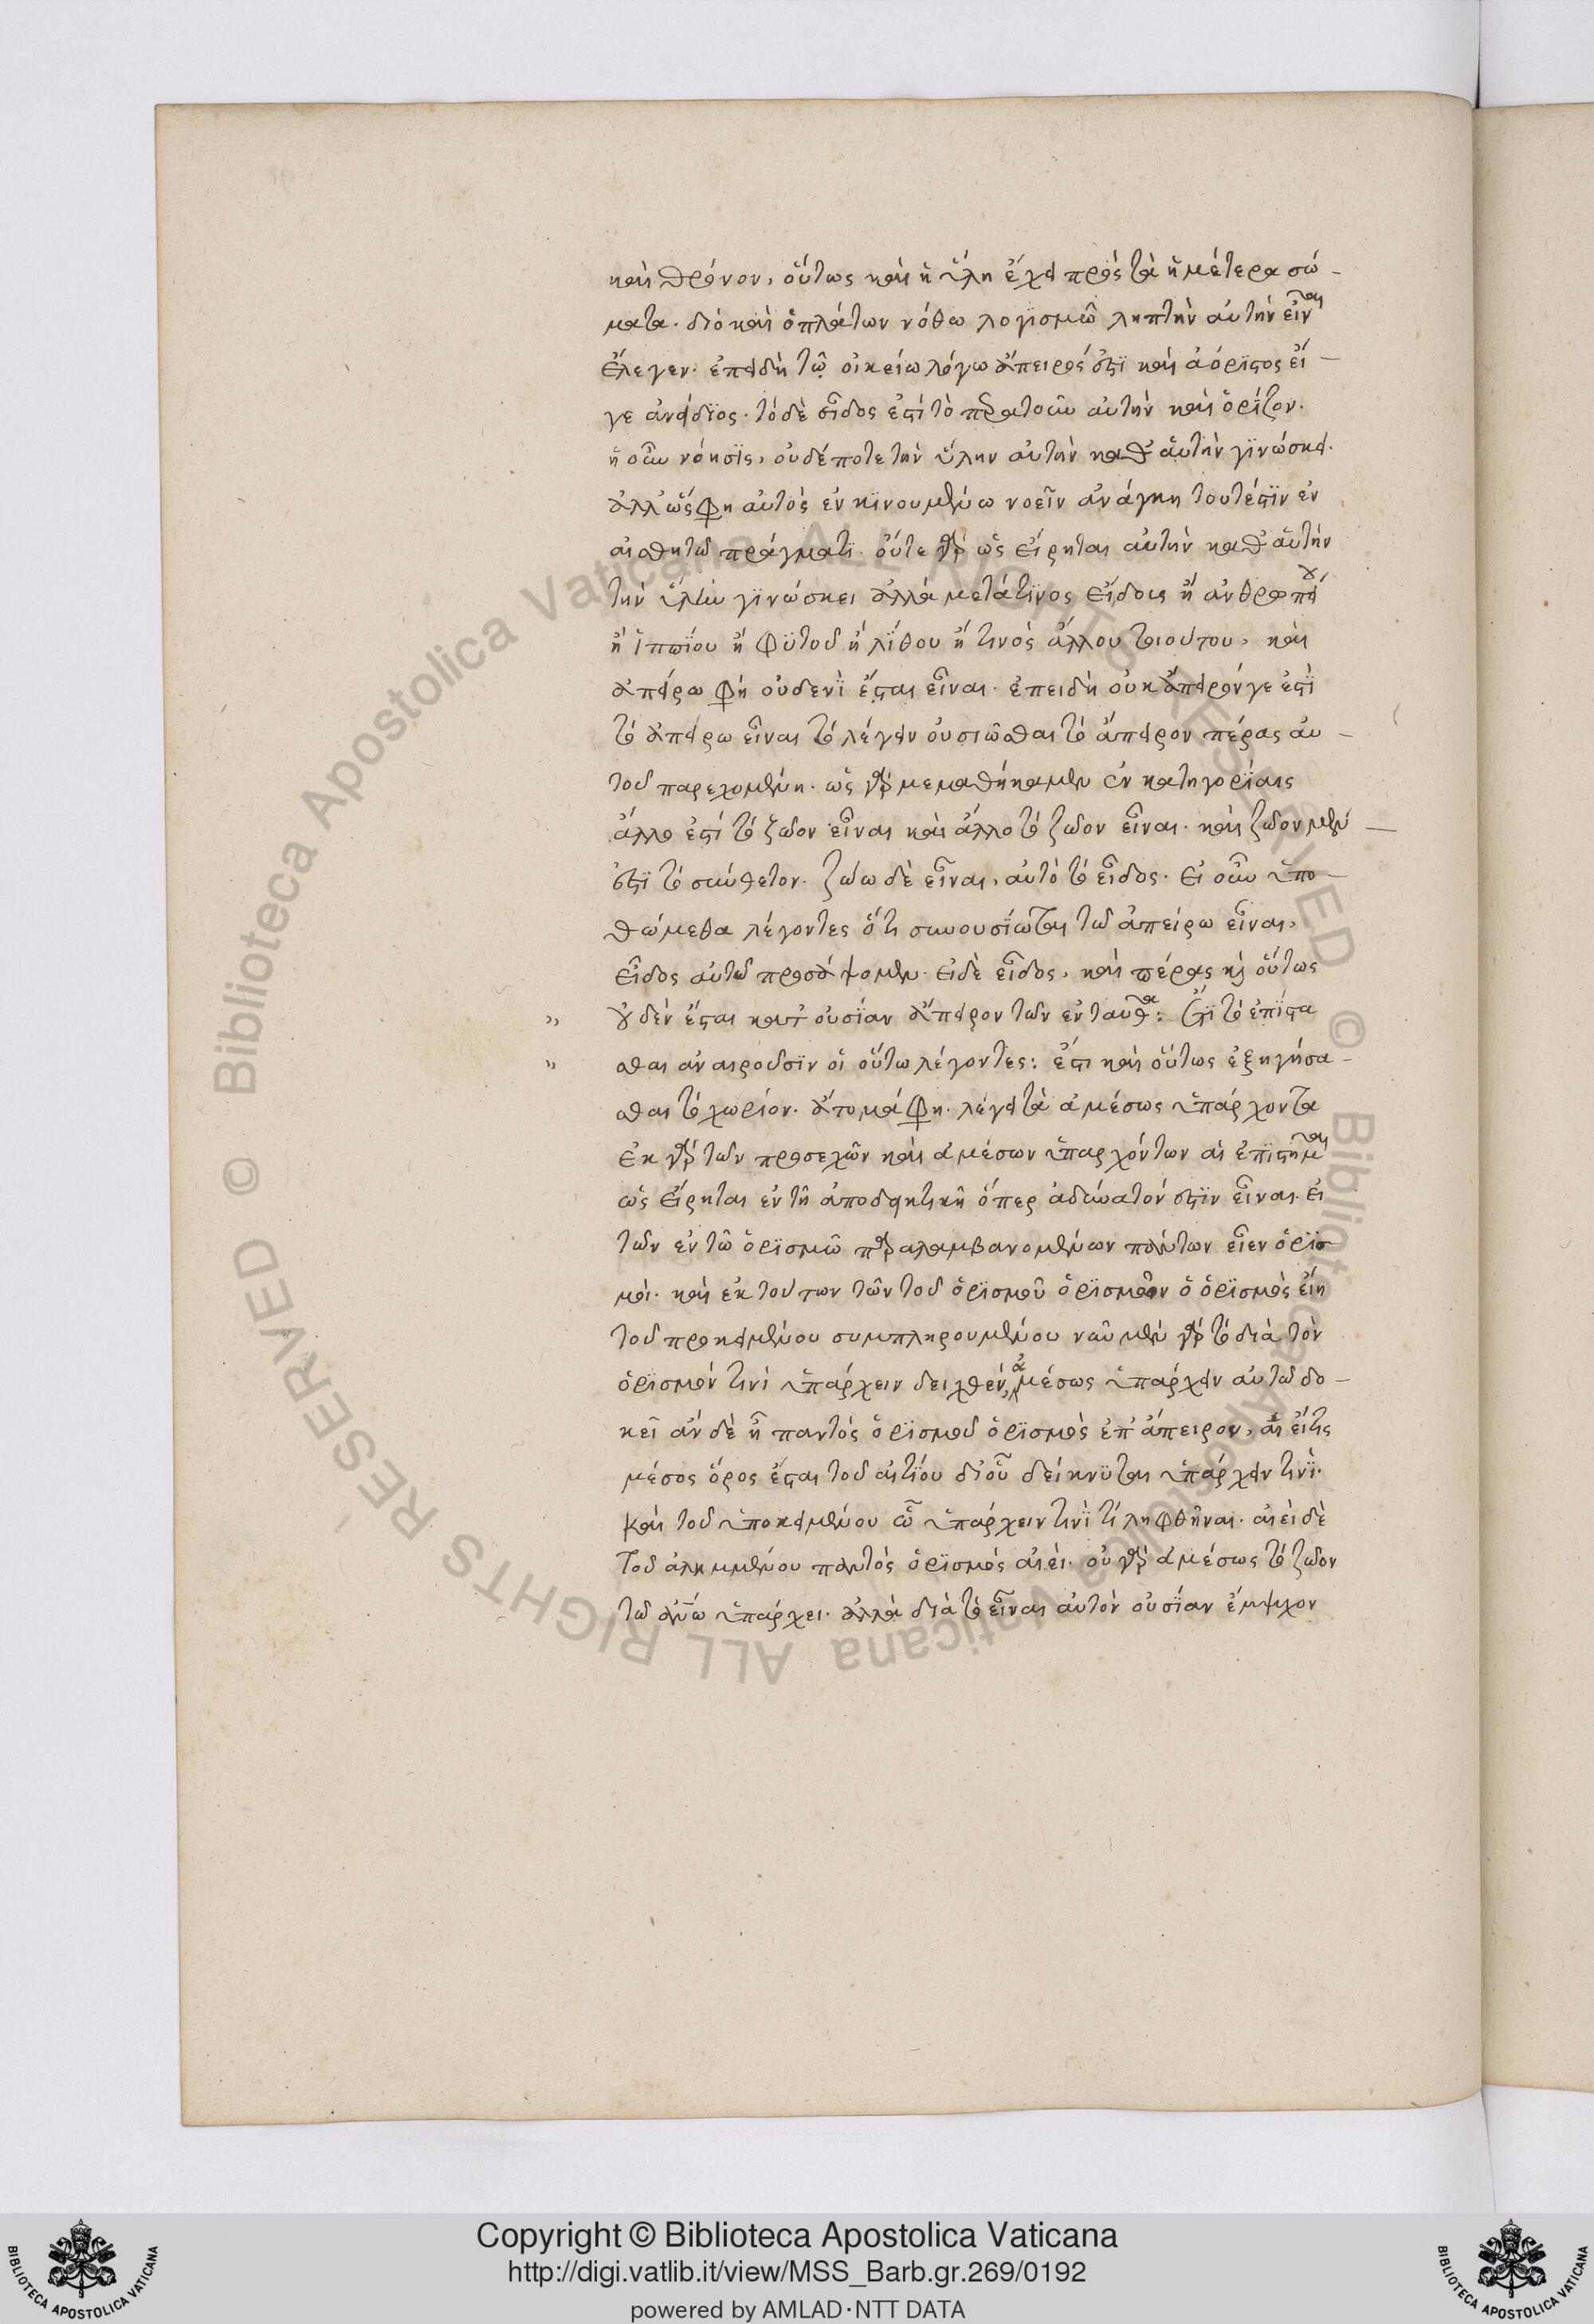 καὶ θρόνον, οὕτως καὶ ἡ ὕλη ἔχει πρὸς τὰ ἡμέτερα σώ-
ματα. διὸ καὶ ὁ πλάτων νόθω λογϊσμῶ ληπτὴν αὐτὴν εἶναι
ἔλεγεν. ἐπειδὴ τῶ οἰκείω λόγω ἄπειρός ἐστϊ καὶ ἀόρϊστος εἴ-
γε ἀνείδϊος. τὸ δὲ εἶδος ἐστὶ τὸ περατοῦν αὐτὴν καὶ ὁρίζον.
ἡ οὖν νόησϊς, οὐδέποτε τὴν ὕλην αὐτὴν καθ' αὑτὴν γϊνώσκει.
ἀλλ' ὥς φη αὐτὸς ἐν κϊνουμένω νοεῖν ἀνάγκη τουτέστϊν ἐν
αἰσθητῶ πράγματϊ. οὔτε γὰρ ὡς εἴρηται αὐτὴν καθ' αὑτὴν
τὴν ὕλην γϊνώσκει ἀλλὰ μετά τϊνος εἴδους ἢ ἀνθρωπείου
ἢ ἱππίου ἢ φϋτοῦ ἢ λϊθου ἤ τινὸς ἄλλου τοιούτου, καὶ
ἀπείρω φὴ οὐδενϊ ἔσται εἶναι. ἐπειδὴ οὐκ ἄπειρόν γε ἐστϊ
τὸ ἀπείρω εἶναι τὸ λέγειν οὐσιῶσθαι τὸ ἄπειρον πέρας αὐ-
τοῦ παρεχομένη. ὡς γὰρ μεμαθήκαμεν ἐν κατηγορίαις
ἄλλο ἐστὶ τὸ ζῶον εἶναι καὶ ἄλλο τὸ ζῶον εἶναι. καὶ ζῶον μὲν
ἐστϊ τὸ σύνθετον. ζώω δὲ εἶναι, αὐτὸ τὸ εἶδος. εἰ οὖν ὑπο-
θώμεθα λέγοντες ὅτι συνουσίωται τῶ ἀπείρω εἶναι,
εἶδος αὐτῶ προσάψομεν. εἰ δὲ εἶδος, καὶ πέρας καὶ οὕτως
οὐδὲν ἔσται κατ' οὐσίαν ἄπειρον τῶν ἐνταῦθα: ἔτϊ τὸ ἐπίστα
σθαι ἀναιροῦσϊν οἱ οὕτω λέγοντες: ἔστι καὶ οὕτως ἐξηγήσα-
σθαι τὸ χωρίον. ἄτομά φη. λέγει τὰ ἀμέσως ὑπάρχοντα
ἐκ γὰρ τῶν προσεχῶν καὶ ἀμέσων ὑπαρχόντων αἱ ἐπϊστῆμαι
ὡς εἴρηται ἐν τῆ ἀποδεικτικῆ ὅπερ ἀδύνατόν ἐστϊν εἶναι. εἰ
τῶν ἐν τῶ ὁρϊσμῶ παραλαμβανομένων πάντων εἶεν ὁρϊσ
μοί. καὶ ἐκ τούτων τῶν τοῦ ὁρϊσμοῦ ὁρϊσμῶν ὁ ὁρϊσμὸς εἴη
τοῦ προκειμένου συμπληρουμένου νῦν μὲν γὰρ τὸ διὰ τὸν
ὁρϊσμόν τινὶ ὑπάρχειν δειχθέν, ἀμέσως ὑπάρχειν αὐτῶ δο-
κεῖ ἂν δὲ ἦ παντὸς ὁρϊσμοῦ ὁρϊσμὸς ἐπ' ἄπειρον, ἀεί τις
μέσος ὅρος ἔσται τοῦ αἰτίου δι' οὗ δείκνϋται ὑπάρχειν τινϊ.
καὶ τοῦ ὑποκειμένου ὧ ὑπάρχειν τινϊ τί ληφθῆναι. αἰεὶ δὲ
τοῦ ἀλημμένου παντὸς ὁρϊσμός αἰεί. οὐ γὰρ ἀμέσως τὸ ζῶον
τῶ ἀνω ὑπάρχει. ἀλλὰ διὰ τὸ εἶναι αὐτὸν οὐσίαν ἔμψυχον
Copyright © Biblioteca Apostolica Vaticana
http://digi.vatlib.it/view/MSS_Barb.gr.269/0192
powered by AMLAD·NTT DATA